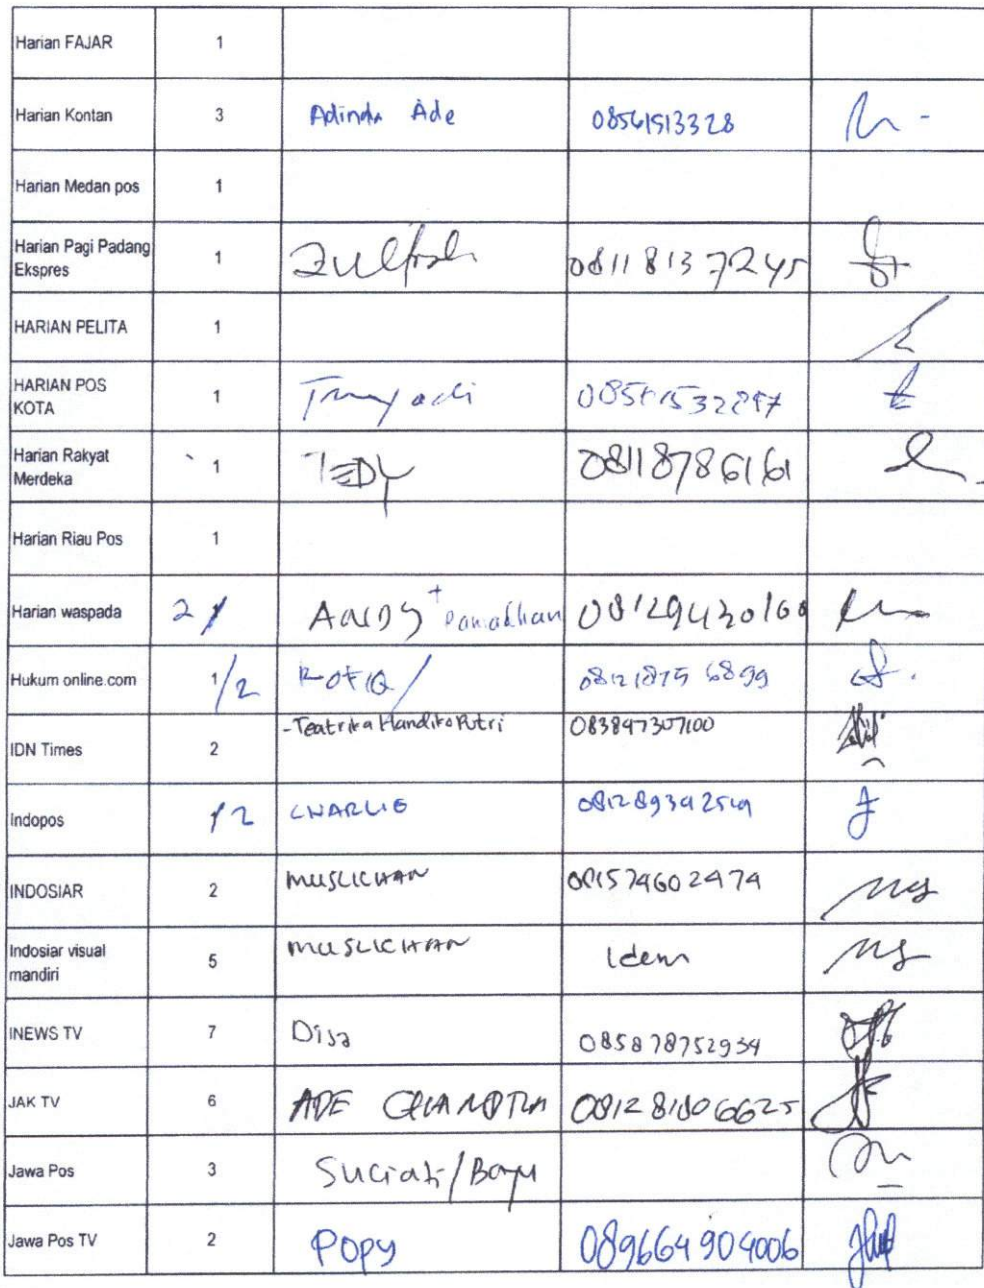 Harian FAJAR 1
Harian Kontan 3 Adinda Ade 08561513328
Harian Medan pos 1
Harian Pagi Padang
Ekspres 1 08118137245
HARIAN PELITA 1
HARIAN POS
KOTA 1
Harian Rakyat
Merdeka 1 TEDY 08118786161
Harian Riau Pos 1
Harian waspada 2 1 ANDY + Ramadhan
Hukum online.com 1/2 ROFIQ/
IDN Times 2 -Teatrika Handiko Putri 083847307100
Indopos 1 2 CHARLIE
INDOSIAR 2 MUSLICHAN
Indosiar visual
mandiri 5 MUSLICHAN Idem
INEWS TV 7 Disa 085878752934
JAK TV 6 ADE CHANDRA
Jawa Pos 3 Suciati/Bayu
Jawa Pos TV 2 Popy 089664904006